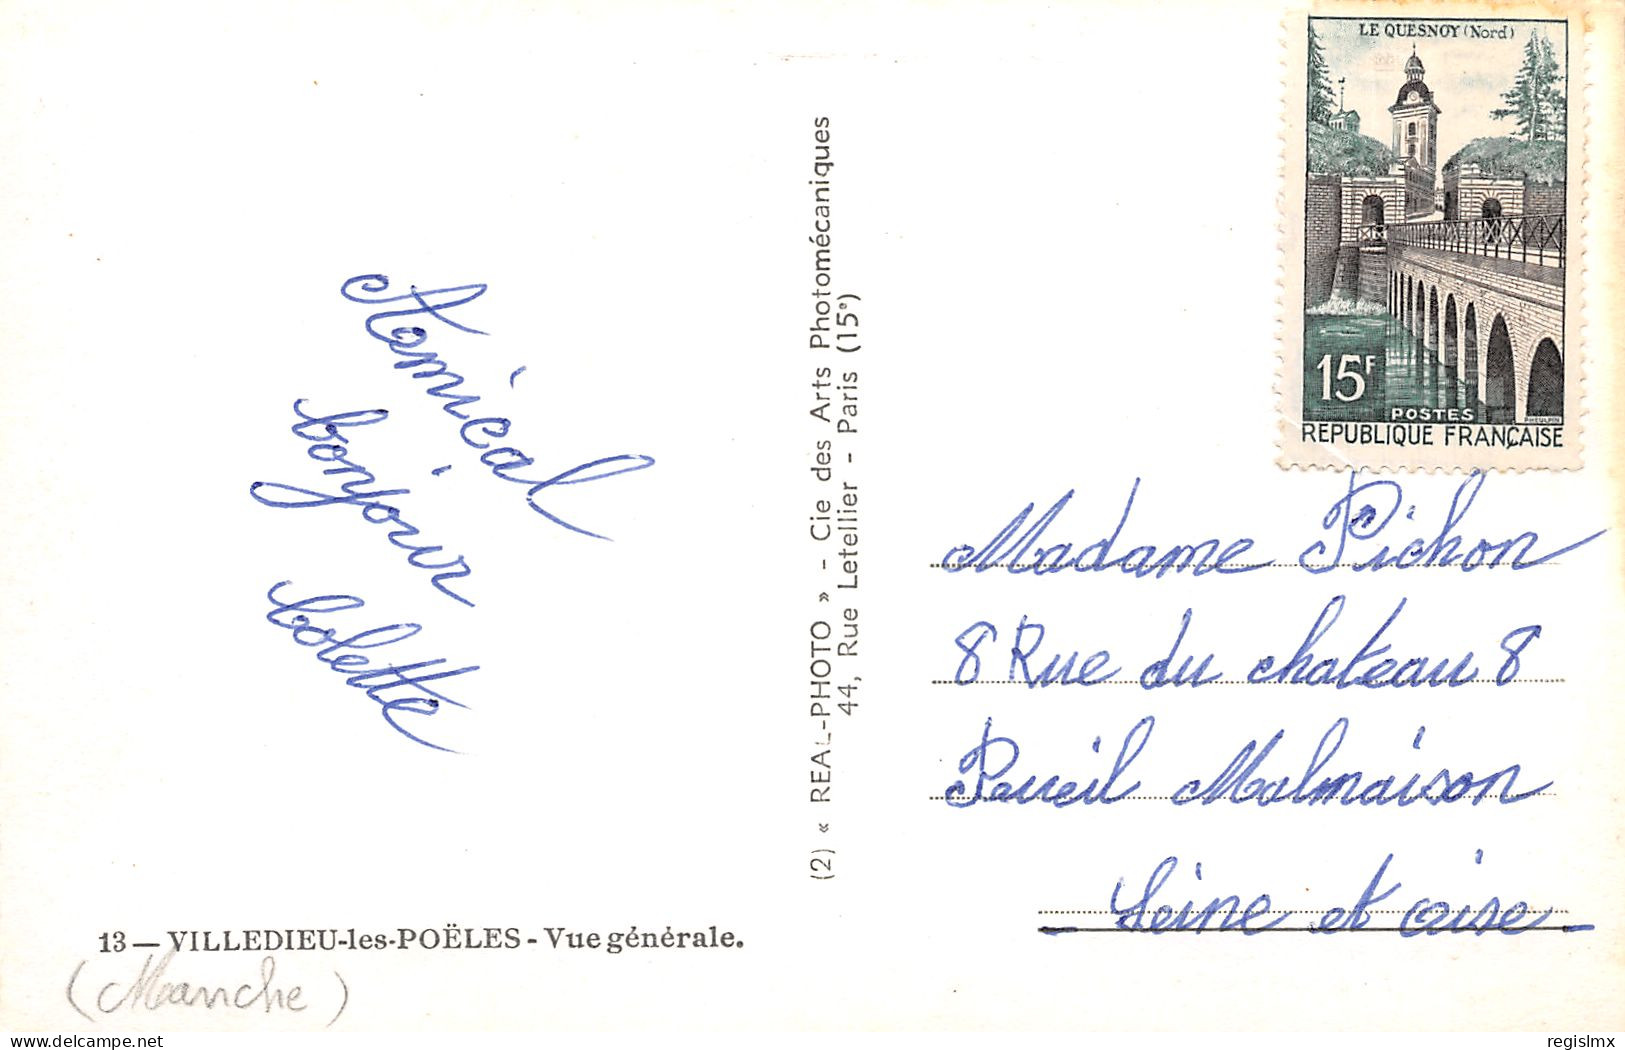 LE QUESNOY (Nord)
15F
POSTES
REPUBLIQUE FRANÇAISE
Amical
bonjour
Colette
(2) « REAL-PHOTO » - Cie des Arts Photomécaniques
44, Rue Letellier - Paris (15e)
Madame Pichon
8 Rue du chateau 8
Rueil Malmaison
Seine et oise
13 — VILLEDIEU-les-POËLES - Vue générale.
(Manche)
delcampe.net
regislmx